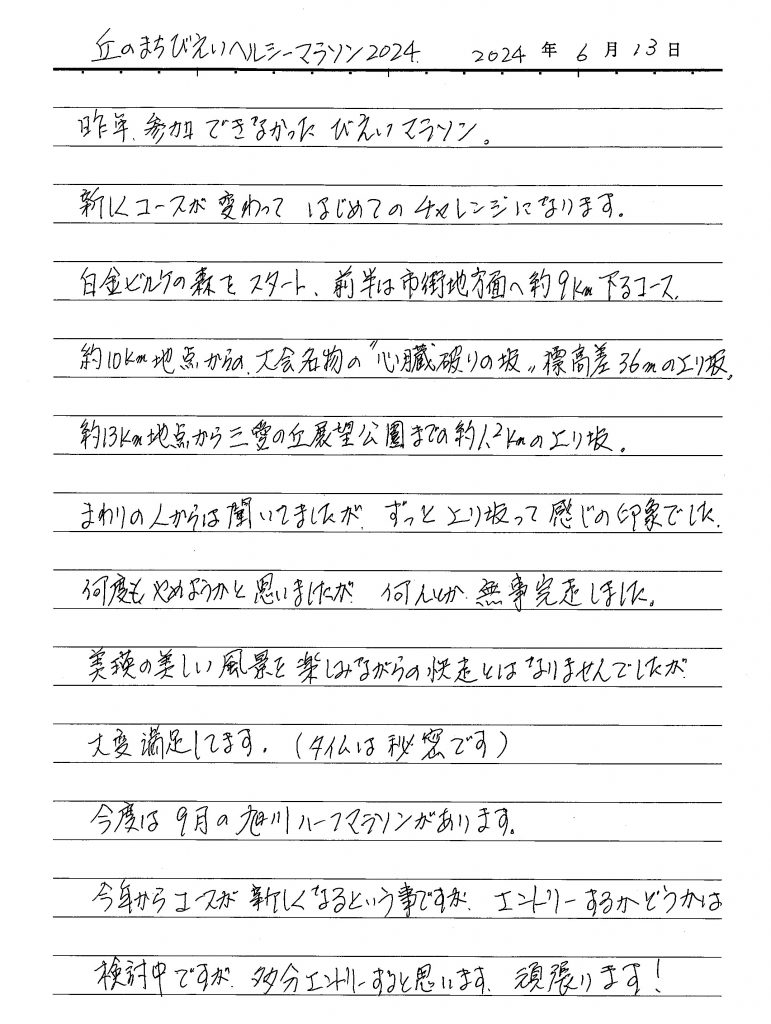 丘のまちびえいヘルシーマラソン2024. 2024年6月13日
昨年、参加できなかったびえいマラソン。
新しくコースが変わって はじめてのチャレンジになります。
白金ビルケの森をスタート、前半は市街地方面へ約9km下るコース、
約10km地点からの、大会名物の〝心臓破りの坂〟標高差36mの上り坂。
約13km地点から三愛の丘展望公園までの約1.2kmの上り坂。
まわりの人からは聞いてましたが、ずっと上り坂って感じの印象でした、
何度もやめようかと思いましたが 何んとか、無事完走しました。
美瑛の美しい風景を楽しみながらの快走とはなりませんでしたが
大変満足してます。(タイムは秘密です)
今度は9月の旭川ハーフマラソンがあります。
今年からコースが新しくなるという事ですが、エントリーするかどうかは
検討中ですが、多分エントリーすると思います、頑張ります!